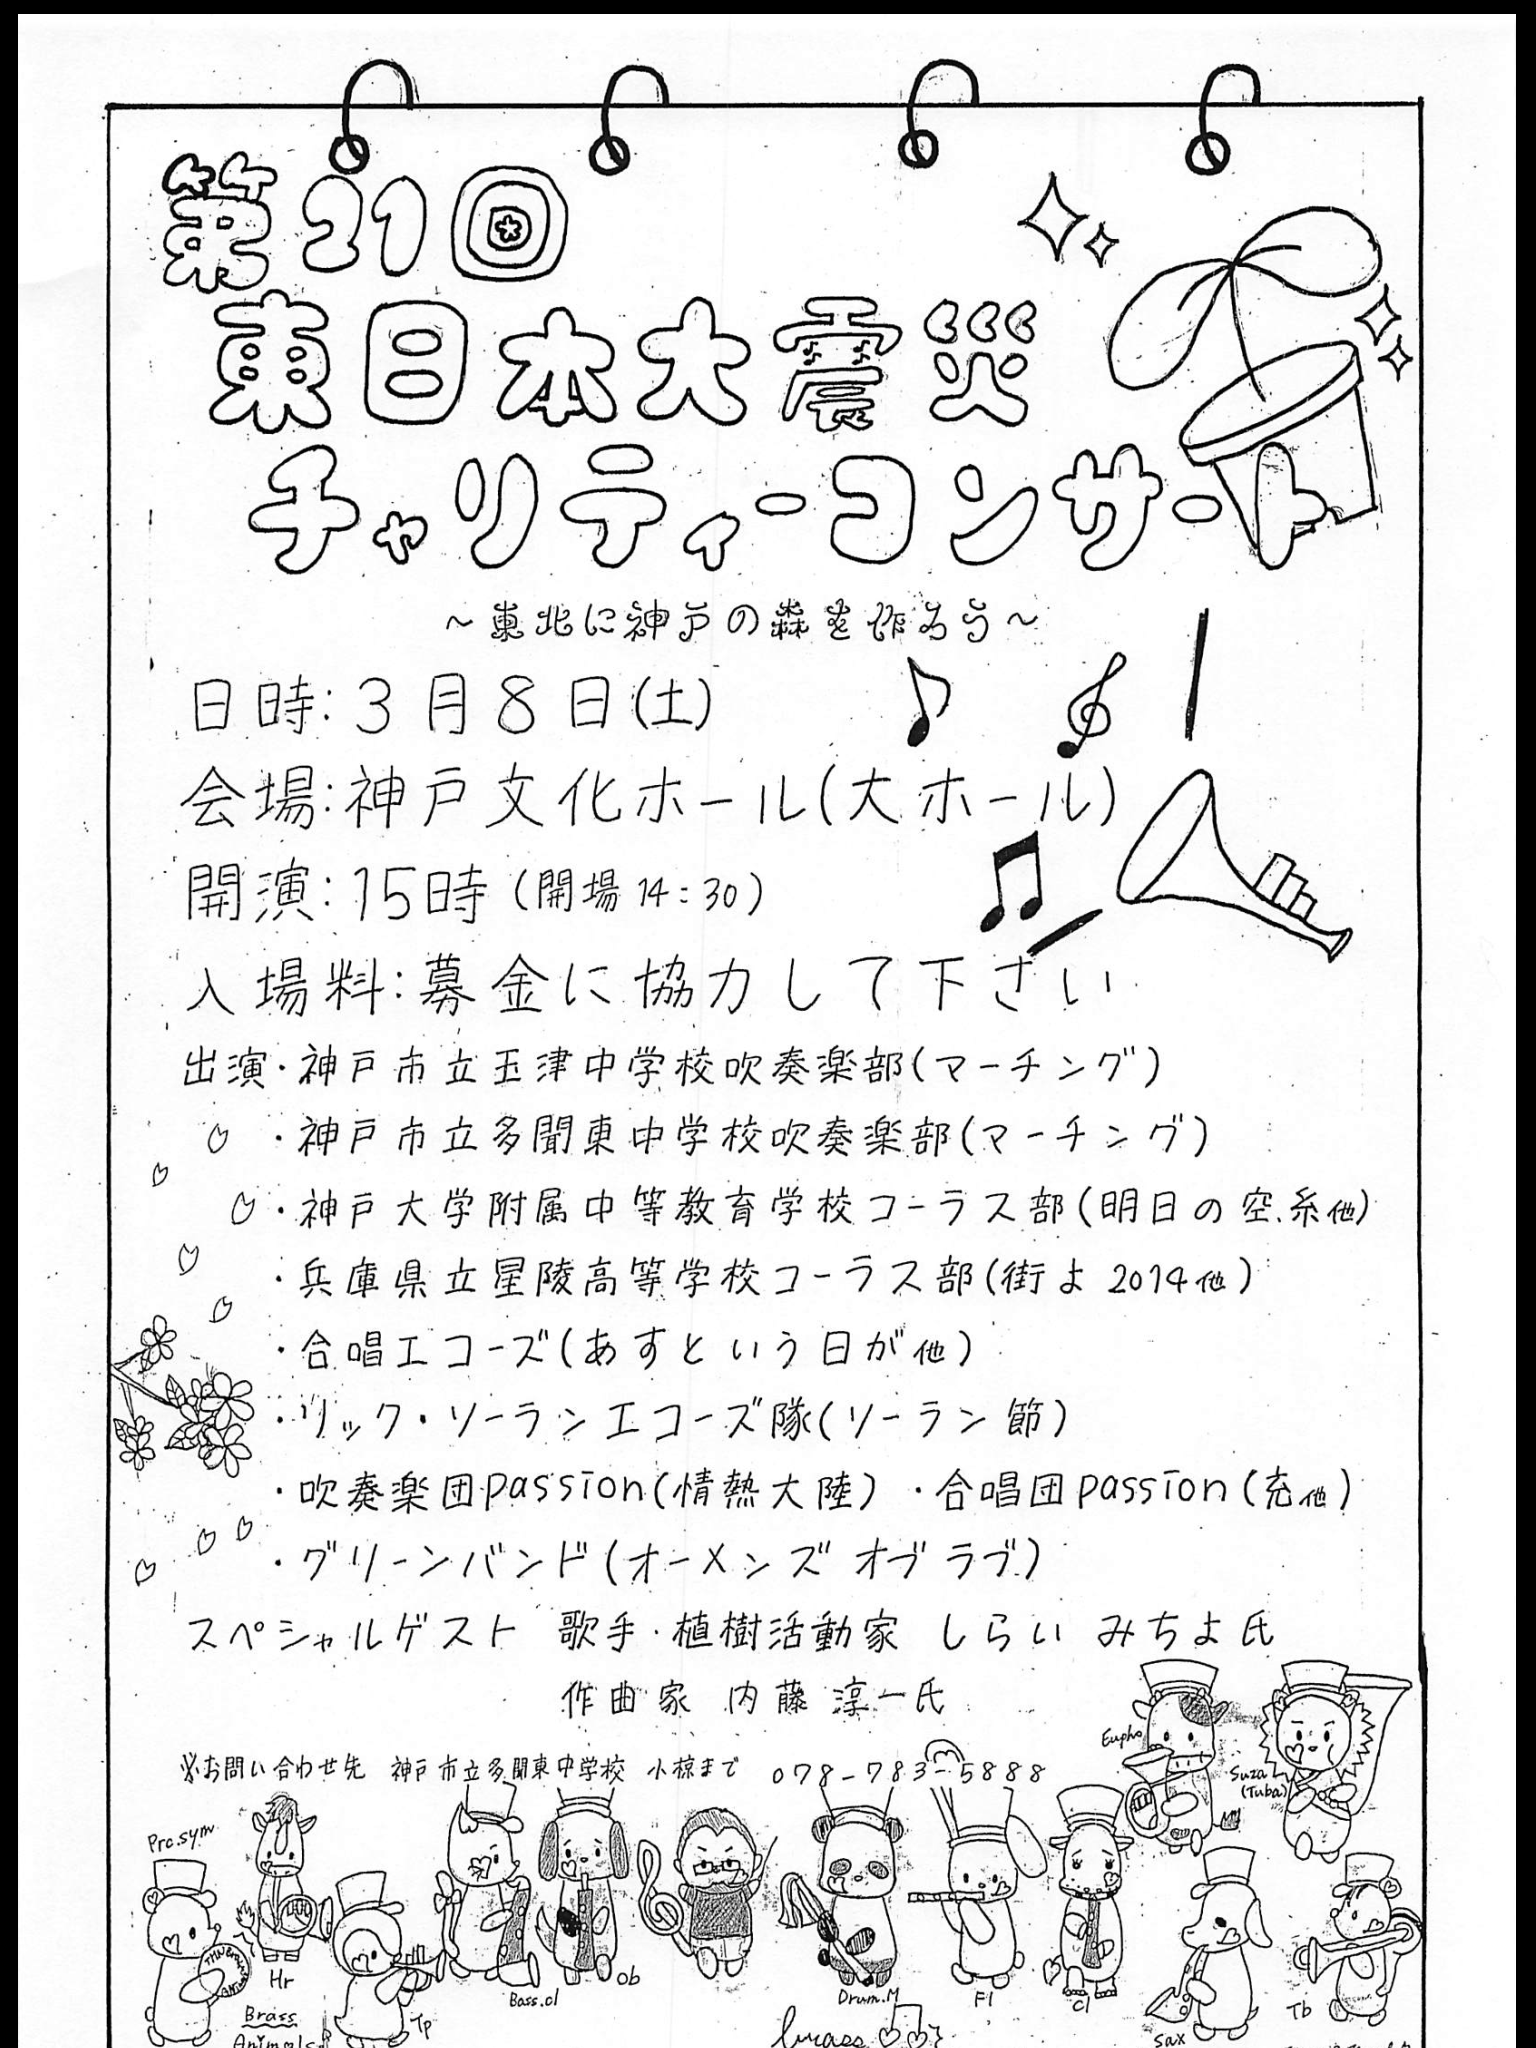 第21回
東日本大震災
チャリティーコンサート
～東北に神戸の森を作ろう～
日時:3月8日(土)
会場:神戸文化ホール(大ホール)
開演:15時(開場14:30)
入場料:募金に協力して下さい
出演・神戸市立玉津中学校吹奏楽部(マーチング)
・神戸市立多聞東中学校吹奏楽部(マーチング)
・神戸大学附属中等教育学校コーラス部(明日の空、糸他)
・兵庫県立星陵高等学校コーラス部(街よ2014他)
・合唱エコーズ(あすという日が他)
・リック・ソーランエコーズ隊(ソーラン節)
・吹奏楽団passion(情熱大陸) ・合唱団passion(充他)
・グリーンバンド(オーメンズ オブ ラブ)
スペシャルゲスト 歌手・植樹活動家 しらい みちよ氏
作曲家 内藤淳一氏
※お問い合わせ先 神戸市立多聞東中学校 小椋まで 078-783-5888
Eupho
Suza
(Tuba)
Pro.sym
Hr
Tp
Bass.cl
Ob
Drum.M
Fl
Cl
Sax
Tb
Brass
Animals